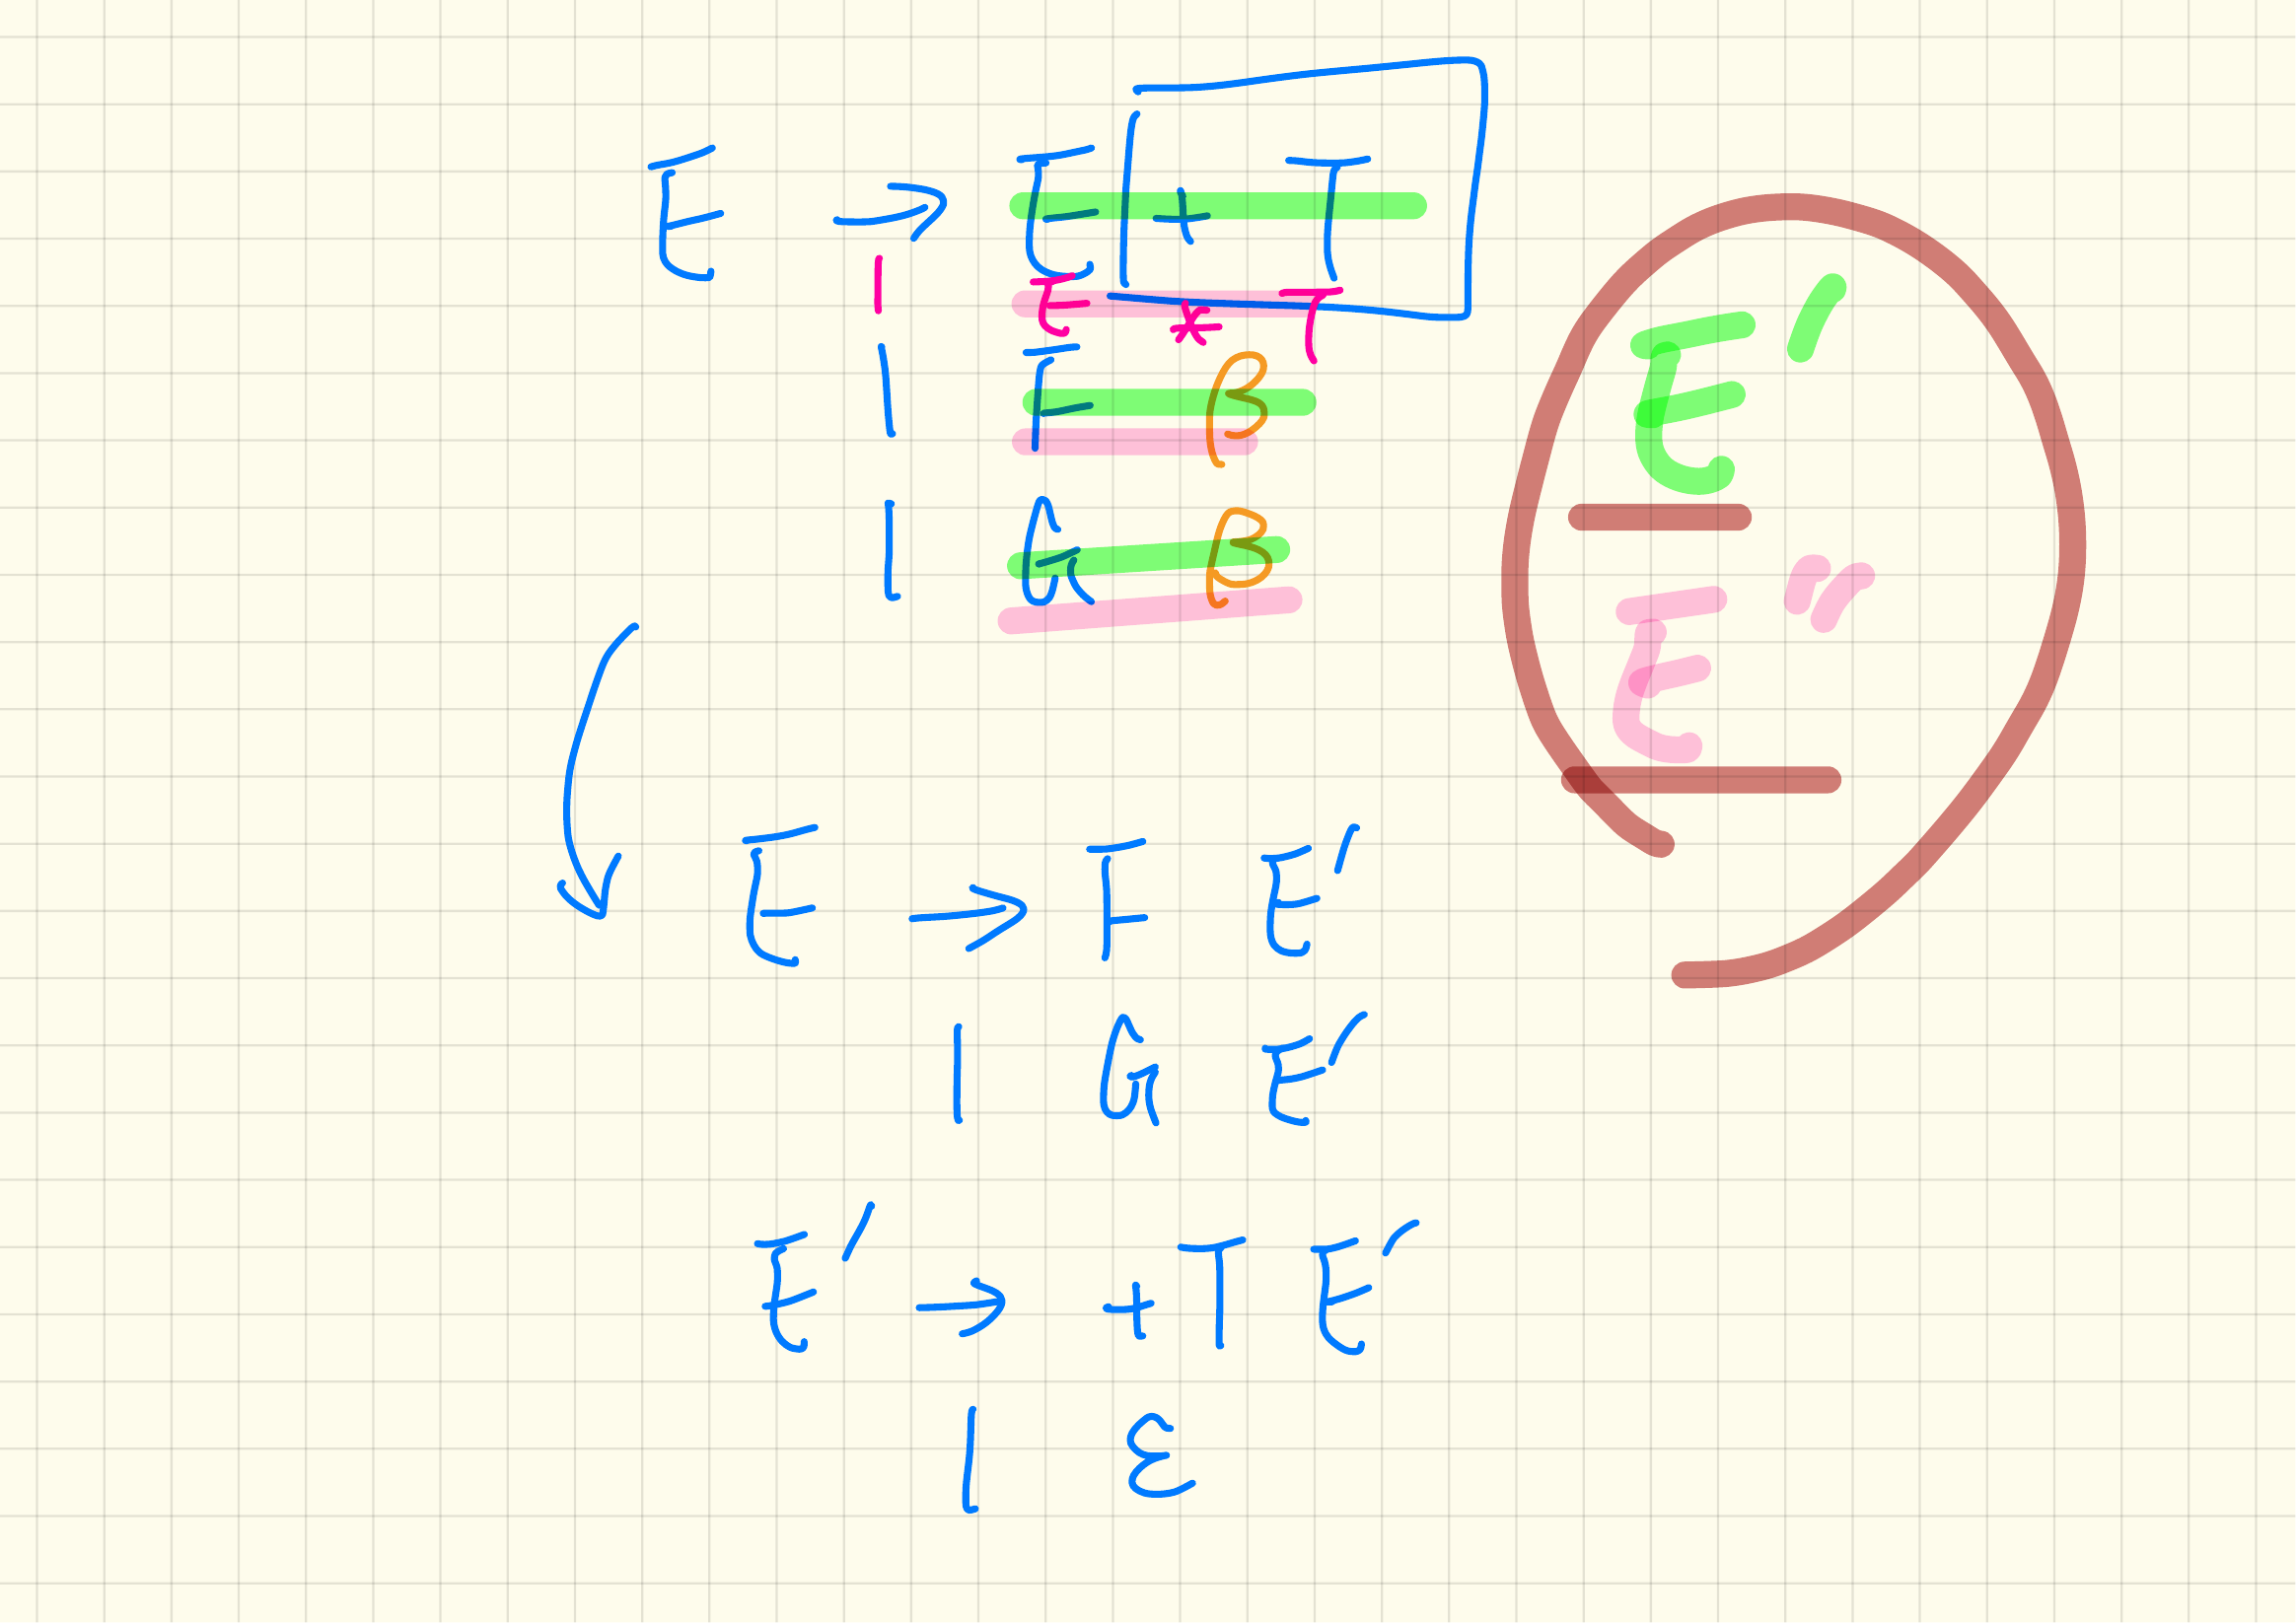 E → E + T
| E * T
| F β
| G β
E'
E''
E → F E'
| G E'
E' → + T E'
| ε